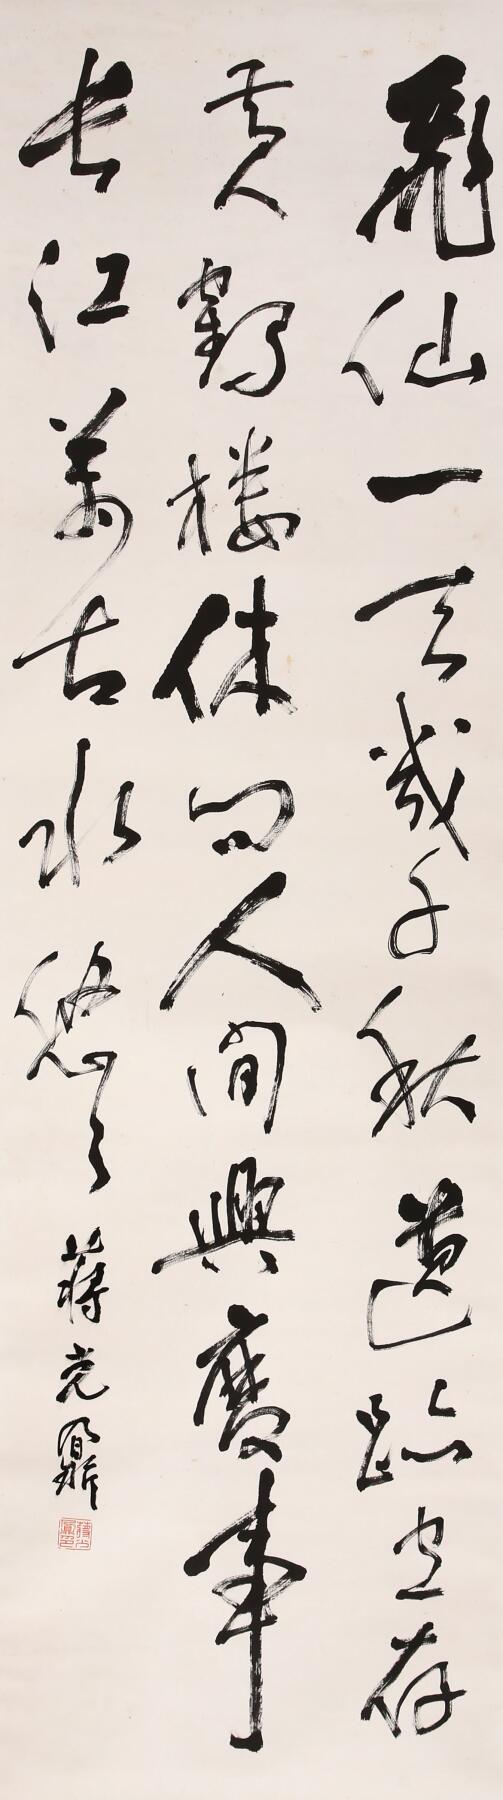 飛仙一去幾千秋遺跡空存
黄鶴樓休問人間興廢事
長江萬古水悠々蔣克鼐